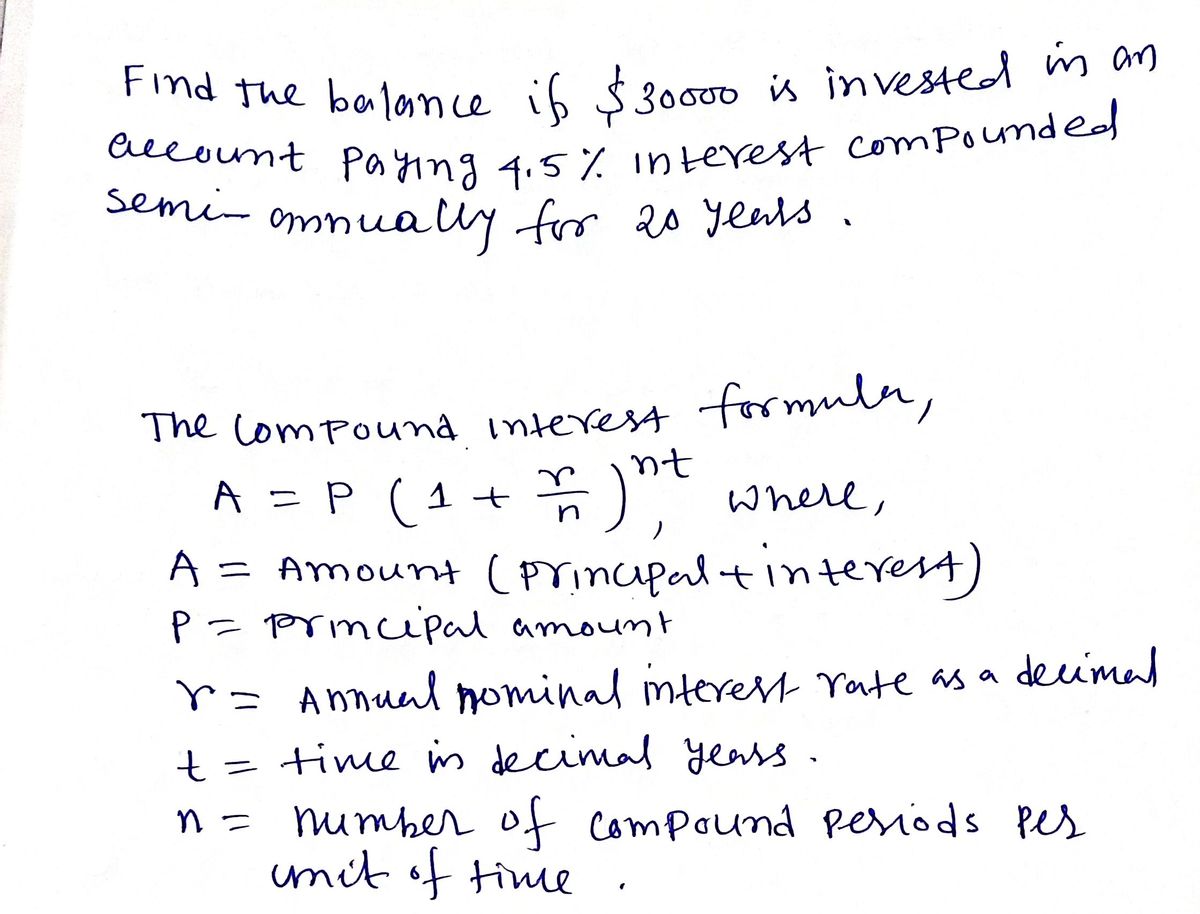 Find the balance if $30000 is invested in an
account paying 4.5% interest compounded
semi-annually for 20 years.
The compound interest formula,
A = P (1 + r/n)^nt, where,
A = Amount (principal + interest)
P = principal amount
r = Annual nominal interest rate as a decimal
t = time in decimal years.
n = number of compound periods per
unit of time.